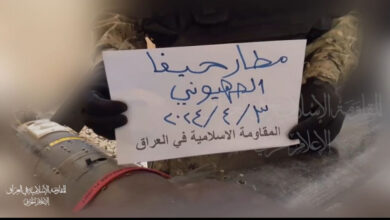 مطار حيفا
الصهيوني
٢٠٢٤/٤/٣
المقاومة الاسلامية في العراق
المقاومة الإسلامية في العراق
الإعلام الحربي